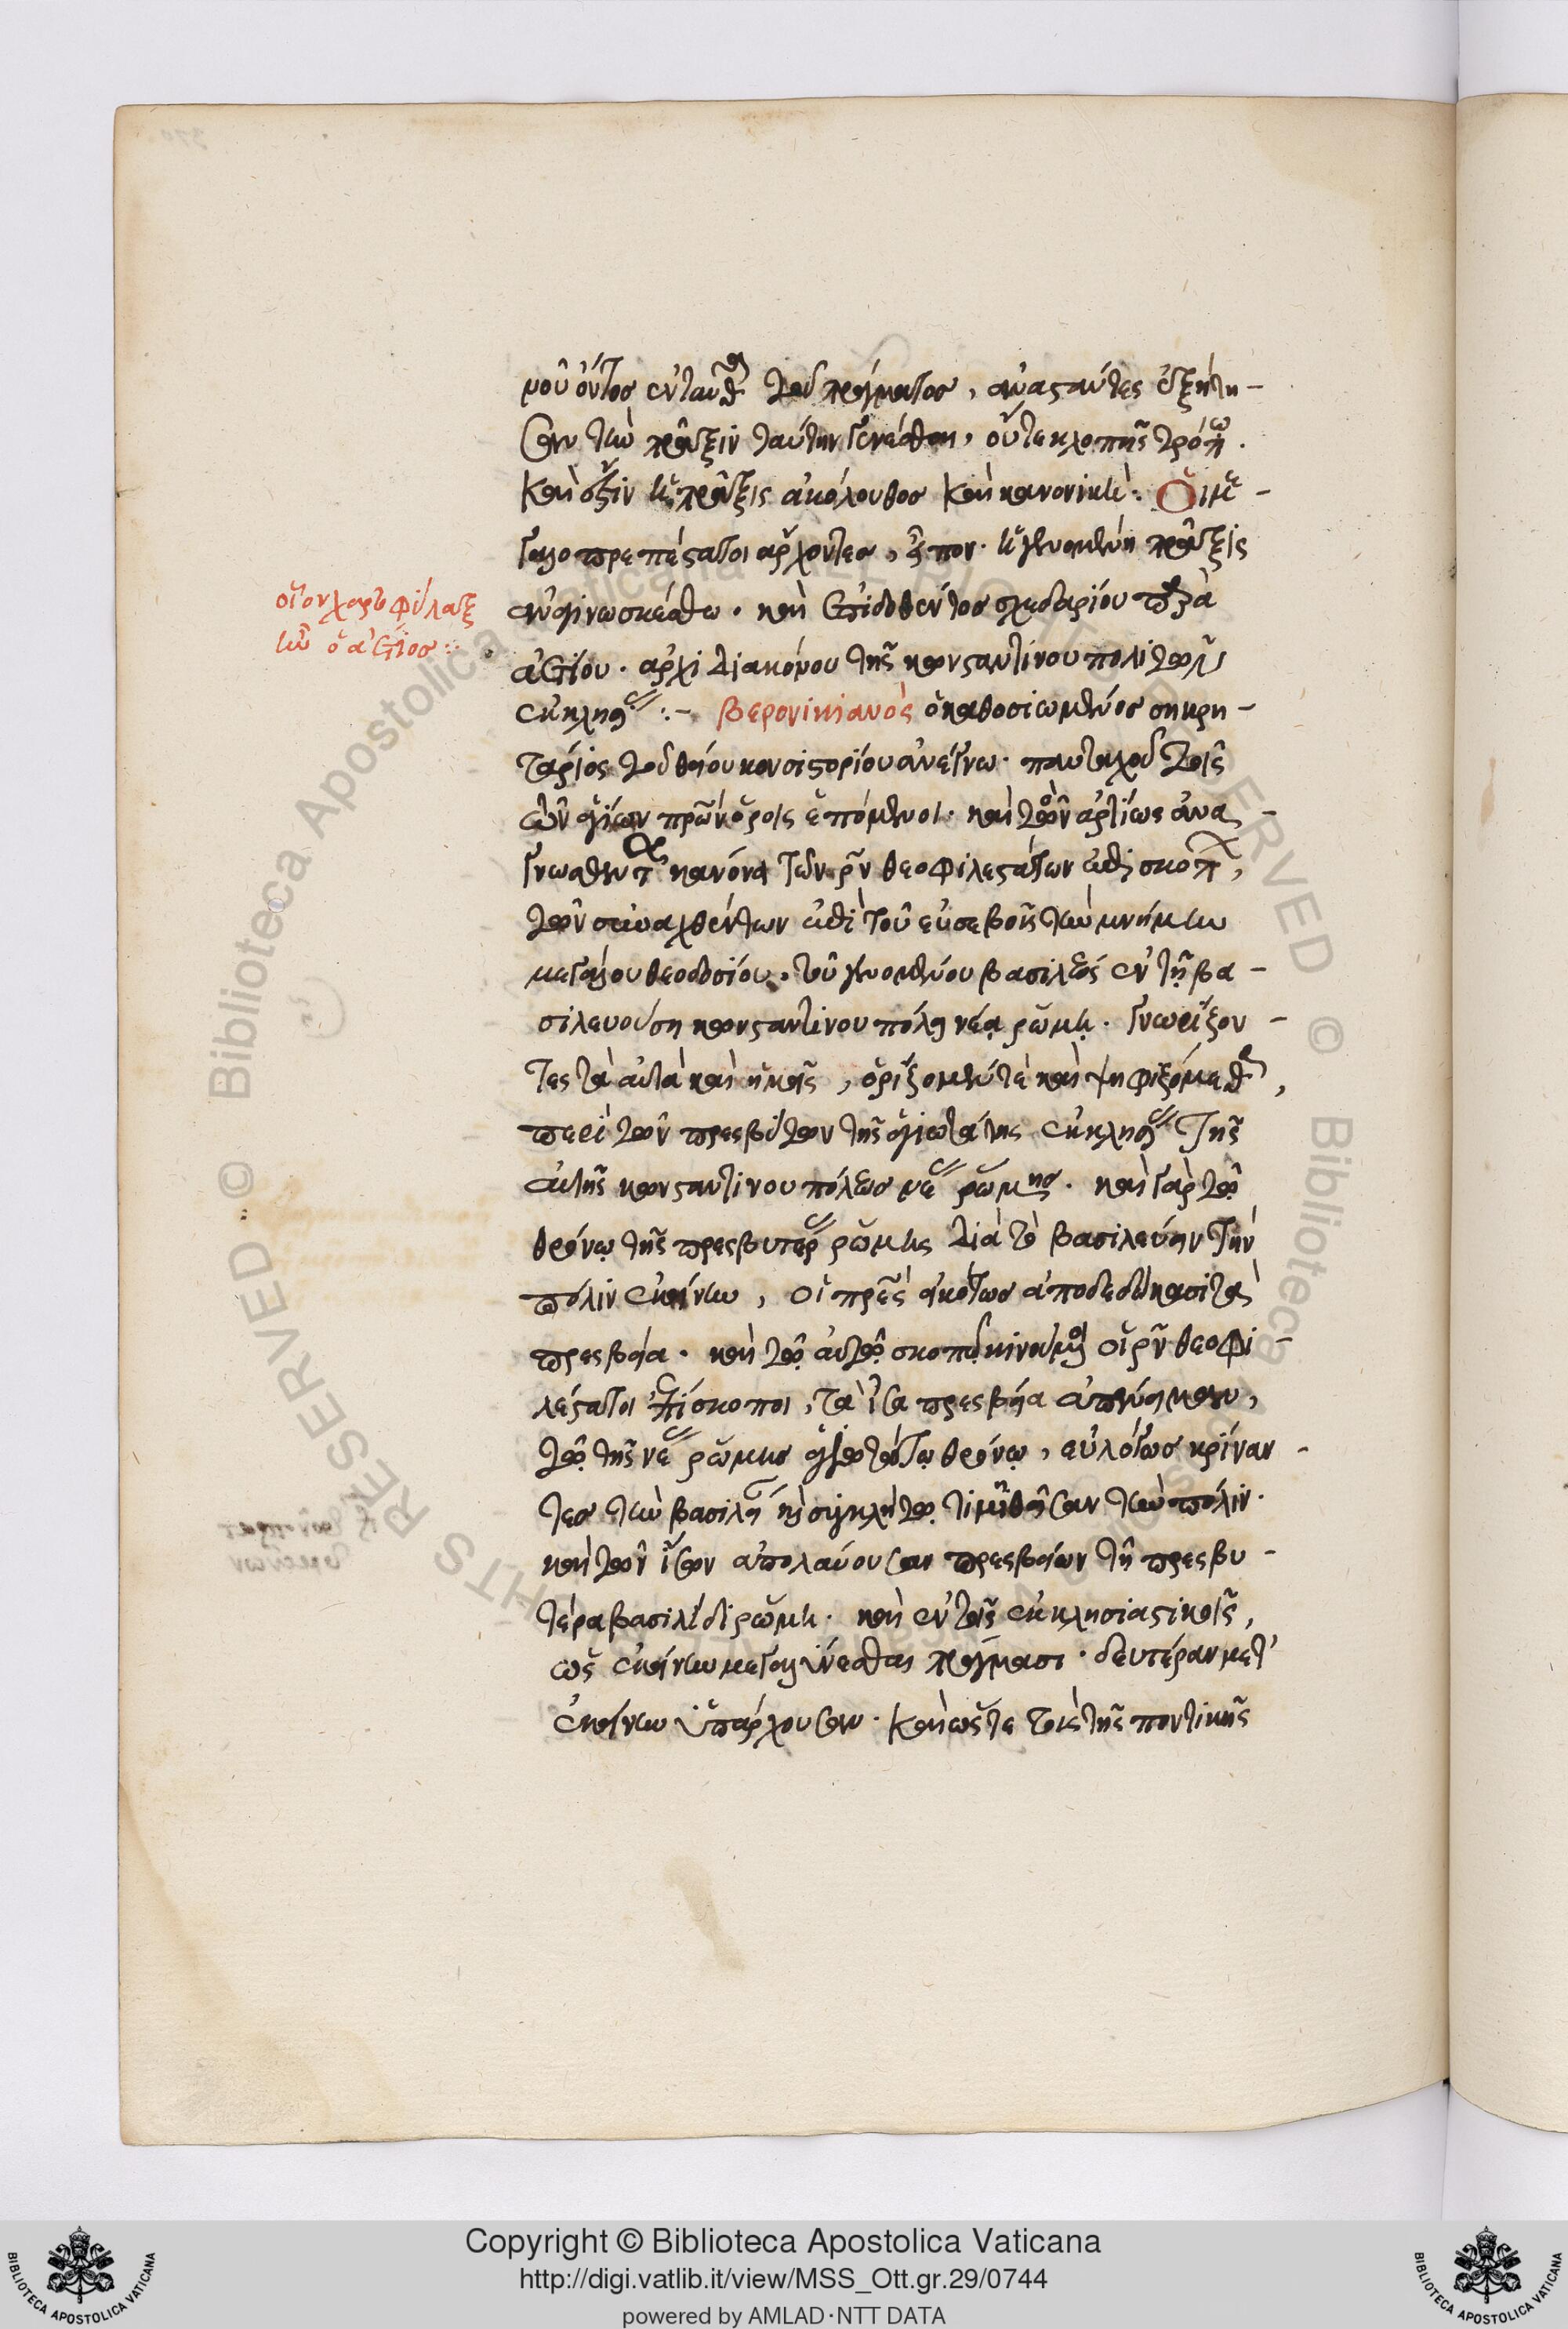 μοῦ ὄντος ἐνταῦθα τοῦ πράγματος, ἀναστάντες ἐξῄτη-
σαν τὴν πρᾶξιν ταύτην γενέσθαι, οὔτε κλοπῆς τρόπω.
καὶ ἔστιν ἡ πρᾶξις ἀκόλουθος καὶ κανονική: Οἱ με-
γαλοπρεπέστατοι ἄρχοντες, εἶπον· ἡ γενομένη πρᾶξις
ἀναγινωσκέσθω. καὶ ἐπιδοθέντος σχεδαρίου παρὰ
οἷον χαρτοφύλαξ
ἦν ὁ ἀέτιος:
ἀετίου. ἀρχιδιακόνου τῆς κωνσταντινουπολιτῶν
ἐκκλησίας:- Βερονικιανὸς ὁ καθοσιωμένος σηκρη-
τάριος τοῦ θείου κονσιστορίου ἀνέγνω. πανταχοῦ τοῖς
τῶν ἁγίων πρων ὅροις ἑπόμενοι. καὶ τὸν ἀρτίως ἀνα-
γνωσθέντα κανόνα τῶν ρν θεοφιλεστάτων ἐπισκόπων,
τῶν συναχθέντων ἐπὶ τοῦ εὐσεβοῦς τὴν μνήμην
μεγάλου θεοδοσίου, τοῦ γενομένου βασιλέως ἐν τῇ βα-
σιλευούσῃ κωνσταντινουπόλει νέᾳ ῥώμῃ. γνωρίζον-
τες τὰ αὐτὰ καὶ ἡμεῖς, ὁρίζομέν τε καὶ ψηφιζόμεθα,
περὶ τῶν πρεσβείων τῆς ἁγιωτάτης ἐκκλησίας τῆς
αὐτῆς κωνσταντινουπόλεως νέας ῥώμης. καὶ γὰρ τῷ
θρόνῳ τῆς πρεσβυτέρας ῥώμης διὰ τὸ βασιλεύειν τὴν
πόλιν ἐκείνην, οἱ πρες εἰκότως ἀποδεδώκασι τὰ
πρεσβεῖα. καὶ τῷ αὐτῷ σκοπῷ κινούμενοι οἱ ρν θεοφι-
λέστατοι ἐπίσκοποι, τὰ ἴσα πρεσβεῖα ἀπένειμαν,
τῷ τῆς νέας ῥώμης ἁγιωτάτῳ θρόνῳ, εὐλόγως κρίναν-
τες τὴν βασιλείᾳ καὶ συγκλήτῳ τιμηθεῖσαν τὴν πόλιν.
καὶ τῶν ἴσων ἀπολαύουσαν πρεσβείων τῇ πρεσβυ-
τέρα βασιλίδι ῥώμῃ. καὶ ἐν τοῖς ἐκκλησιαστικοῖς,
ὡς ἐκείνην μεγαλύνεσθαι πράγμασι. δευτέραν μετ'
ἐκείνην ὑπάρχουσαν. καὶ ὥστε τοὺς τῆς ποντικῆς
Copyright © Biblioteca Apostolica Vaticana
http://digi.vatlib.it/view/MSS_Ott.gr.29/0744
powered by AMLAD·NTT DATA